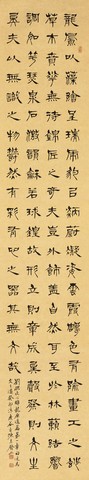 龍鳳以藻繪呈瑞虎豹以炳蔚凝姿雲霞雕色有踰畫工之妙
草木賁華無待錦匠之奇夫豈外飾蓋自然耳至於林籟結響
調如竽瑟泉石激韻和若球鍠故形立則章成矣聲發則文生
矣夫以無識之物鬱然有彩有心之器其無文歟
劉勰文心雕龍原道篇